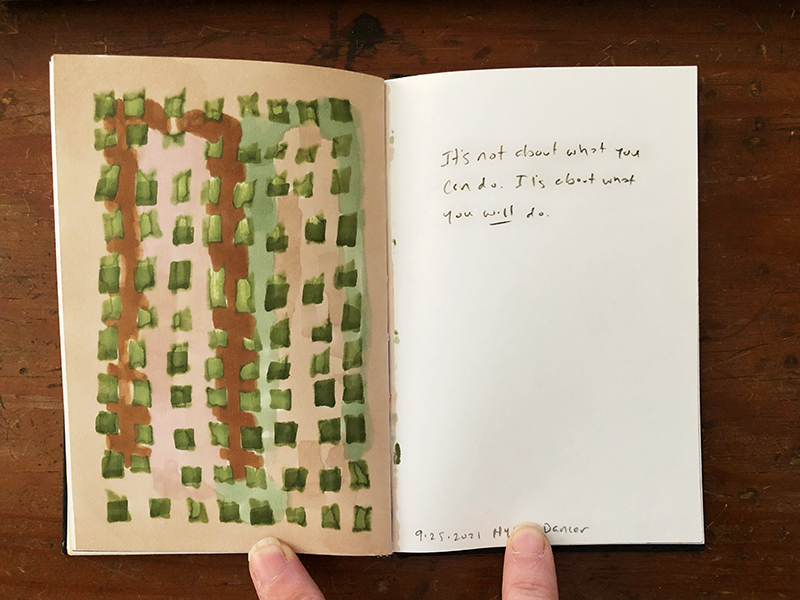 It's not about what you
can do. It's about what
you will do.
9.25.2021 Dancer